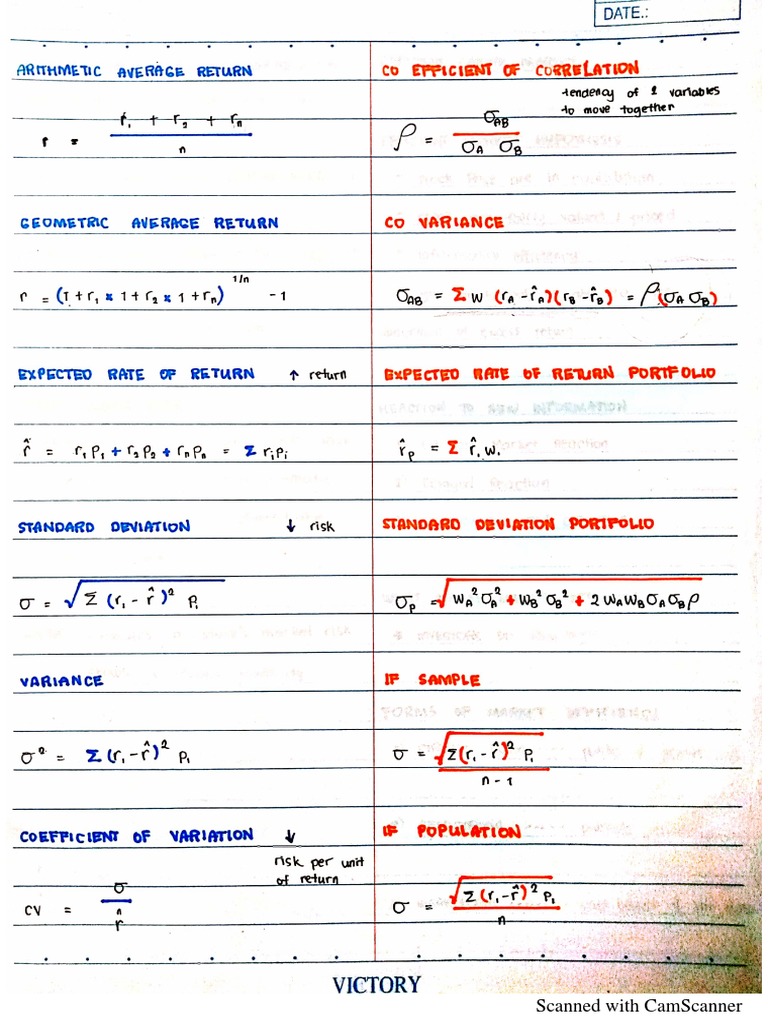 DATE.:
ARITHMETIC AVERAGE RETURN
r = (r₁ + r₂ + rₙ) / n
GEOMETRIC AVERAGE RETURN
r = (1 + r₁ x 1 + r₂ x 1 + rₙ)^1/n - 1
EXPECTED RATE OF RETURN ↑ return
r̂ = r₁P₁ + r₂P₂ + rₙPₙ = Σ rᵢPᵢ
STANDARD DEVIATION ↓ risk
σ = √Σ (r₁ - r̂)² P₁
VARIANCE
σ² = Σ (r₁ - r̂)² P₁
COEFFICIENT OF VARIATION ↓
risk per unit
of return
CV = σ / r̂
CO EFFICIENT OF CORRELATION
tendency of 2 variables
to move together
ρ = σAB / σA σB
CO VARIANCE
σAB = Σ w (rA - r̂A)(rB - r̂B) = ρ(σA σB)
EXPECTED RATE OF RETURN PORTFOLIO
r̂p = Σ r̂. w.
STANDARD DEVIATION PORTFOLIO
σp = √wA²σA² + wB²σB² + 2 wA wB σA σB ρ
IF SAMPLE
σ = √Σ(r₁ - r̂)² P₁ / n - 1
IF POPULATION
σ = √Σ (r₁ - r̂)² P₁ / n
VICTORY
Scanned with CamScanner